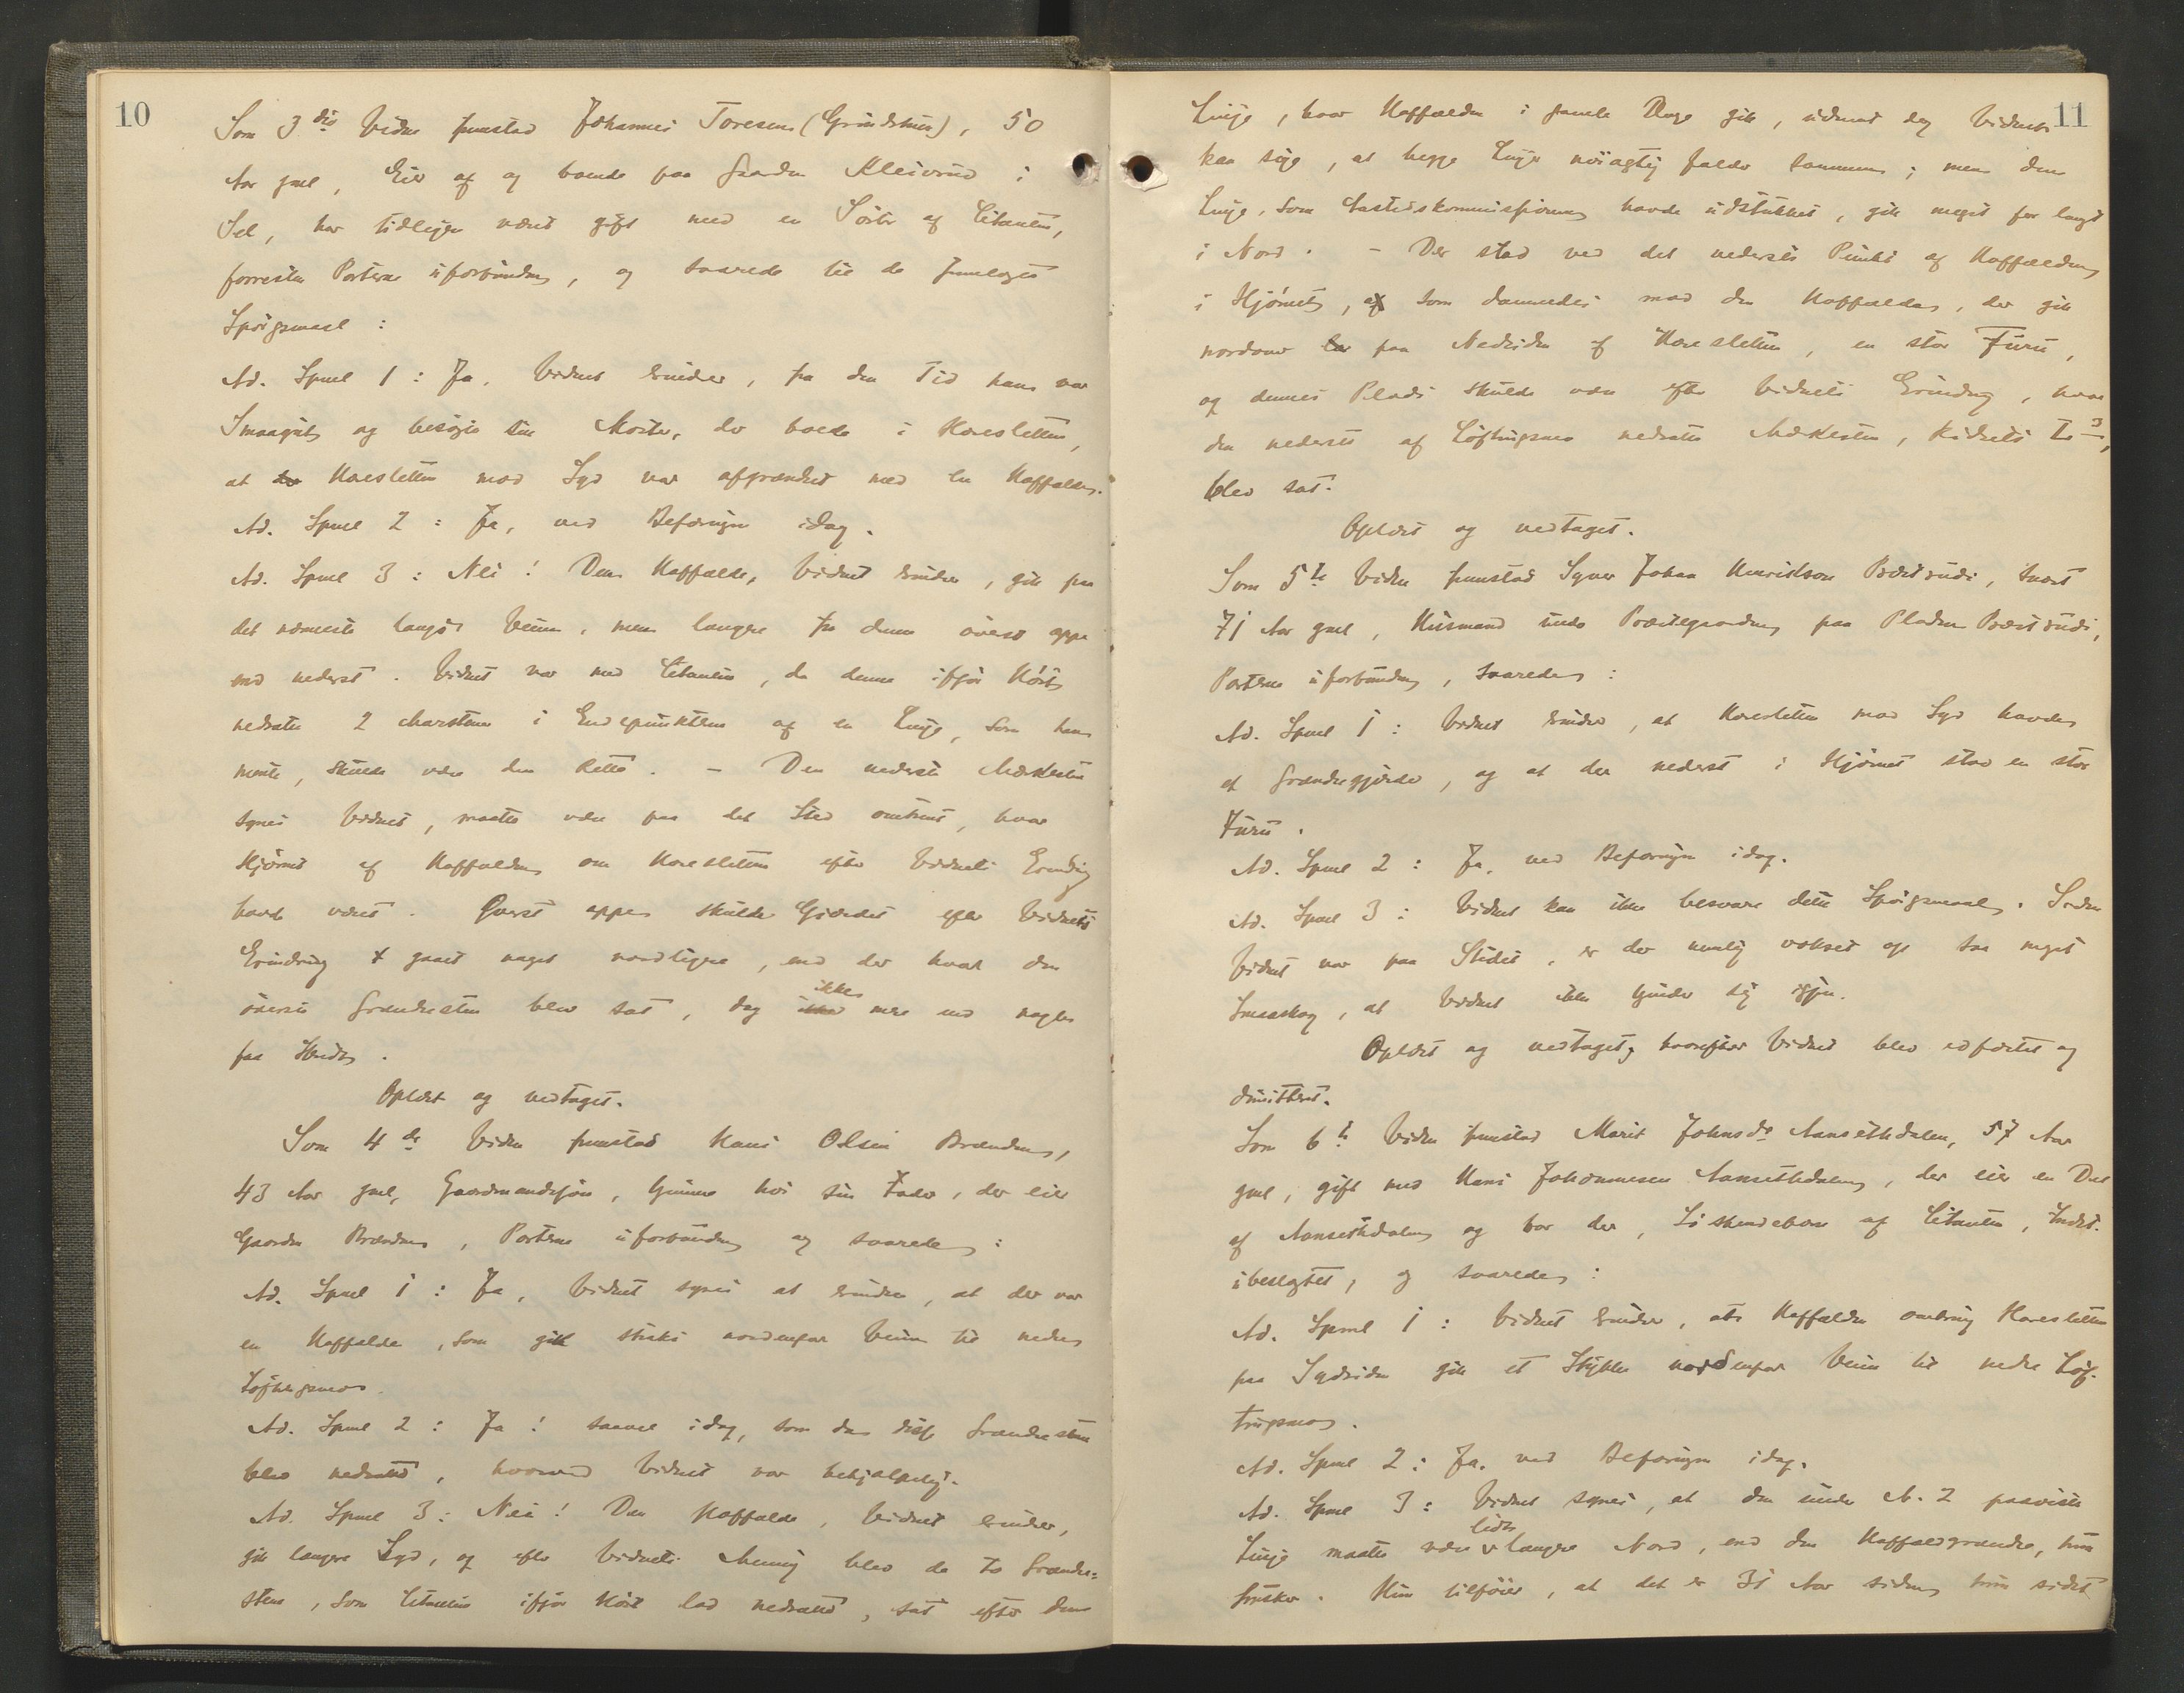 10
Som 3die Vidne fremstod Johannes Toresen (Grindstuen), 50
Aar gml, Eier af og boende paa Gaarden Kleivrud i
Sel, har tidligere været gift med en Søster af Citanten,
forresten Parterne uforbunden, og svarede til de fremlagte
Spørgsmaal :
Ad. Spml 1 : Ja. Vidnet erindrer, fra den Tid han var
Smaagut og besøgte sin Moster, der boede i Haresletten,
at Haresletten mod Syd var afgrændset med en Hoffælde.
Ad. Spml 2 : Ja, ved Befaringen idag.
Ad. Spml 3 : Nei ! Den Hoffælde, Vidnet erindrer, gik paa
det nærmeste langs Veien, men længere fra denne øverst oppe
end nederst. Vidnet var med Citanten, da denne ifjor Høst
nedsatte 2 Markstene i Endepunkterne af en Linje, som han
mente, skulde være den rette. - Den nederste Markesten
synes Vidnet, maatte være paa det Sted omtrent, hvor
Hjørnet af Hoffælden om Haresletten efter Vidnets Erindring
havde været. Øverst oppe skulde Gjærdet efter Vidnets
Erindring gaaet noget nordligere, end der hvor den
øverste Grændsesten blev sat, dog ikke mere end nogle
faa Skridt.
Oplæst og vedtaget.
Som 4de Vidne fremstod Hans Olsen Brænden,
43 Aar gml, Gaardmandssøn, hjemme hos sin Fader, der eier
Gaarden Brænden, Parterne uforbunden og svarede :
Ad. Spml 1 : Ja, Vidnet synes at erindre, at der var
en Hoffælde, som gik straks nordenfor Veien til nedre
Løftingsmo.
Ad. Spml 2 : Ja ! saavel idag, som da disse Grændsestene
blev nedsatte, hvorved Vidnet var behjælpelig.
Ad. Spml 3 : Nei ! Den Hoffælde, Vidnet erindrer,
gik længere Syd, og efter Vidnets Mening blev de to Grændse=
stene, som Citanten ifjor Høst lod nedsatte, sat efter den
11
Linje, hvor Hoffælden i gamle Dage gik, uden at dog Vidnet
kan sige, at begge Linjer nøiagtig faldt sammen ; men den
Linje, som Aastedskommissionen havde udstukket, gik meget for langt
i Nord. - Der stod ved det nederste Punkt af Hoffælden
i Hjørnet, som dannedes mod den Hoffælde, der gik
nordover paa Nedsiden af Haresletten, en stor Furu,
og dennes Plads skulde være efter Vidnets Erindring, hvor
den nederste af Løftingsmo nedsatte Markesten, Kartets
blev sat.
Oplæst og vedtaget.
Som 5te Vidne fremstod Syver Johan Prestrude, snart
71 Aar gml, Husmand under Prestegaarden paa Pladsen Prestrude,
Parterne uforbunden, svarede :
Ad. Spml 1 : Vidnet erindrer, at Haresletten mod Syd havde
et Grændsegjærde, og at der nederst i Hjørnet stod en stor
Furu.
Ad. Spml 2 : Ja, ved Befaringen idag.
Ad. Spml 3 : Vidnet kan ikke besvare dette Spørgsmaal. Siden
Vidnet var paa Stedet, er der nemlig vokset op saa meget
Smaaskog, at Vidnet ikke kjender sig igjen.
Oplæst og vedtaget, hvorefter Vidnet blev edfæstet og
dimitteret.
Som 6te Vidne fremstod Marit Johnsdr Aansethdalen, 57 Aar
gml, gift med Hans Johannesen Aansethdalen, der eier en Del
af Aansethdalen og bor der, Søskendebarn af Citanten, Indst.
ubeslægtet, og svarede :
Ad. Spml 1 : Vidnet erindrer, at Hoffælden omkring Haresletten
paa Sydsiden gik et Stykke nordenfor Veien til nedre Løf-
tingsmo.
Ad. Spml 2 : Ja, ved Befaringen idag.
Ad. Spml 3 : Vidnet synes, at den under No. 2 paaviste
Linje maatte være lidt længere Nord, end den Hoffældgrændse, hun
husker. Hun tilføier, at det er 31 Aar siden hun sidst